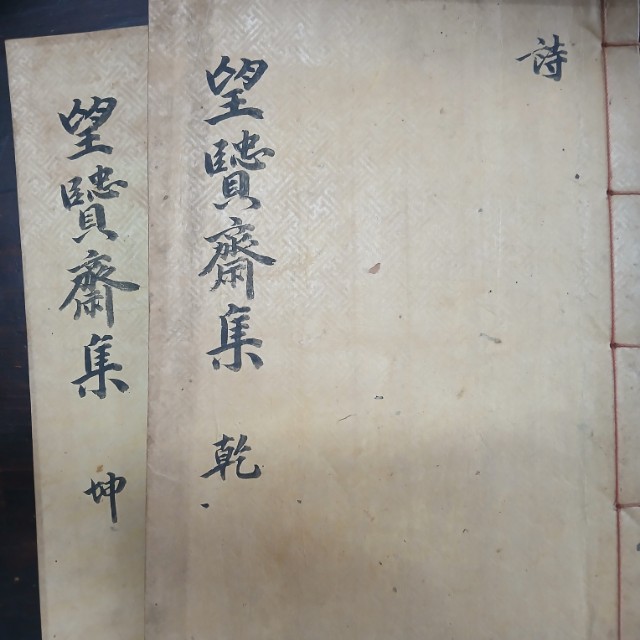 詩
望贒齋集 乾
望贒齋集 坤